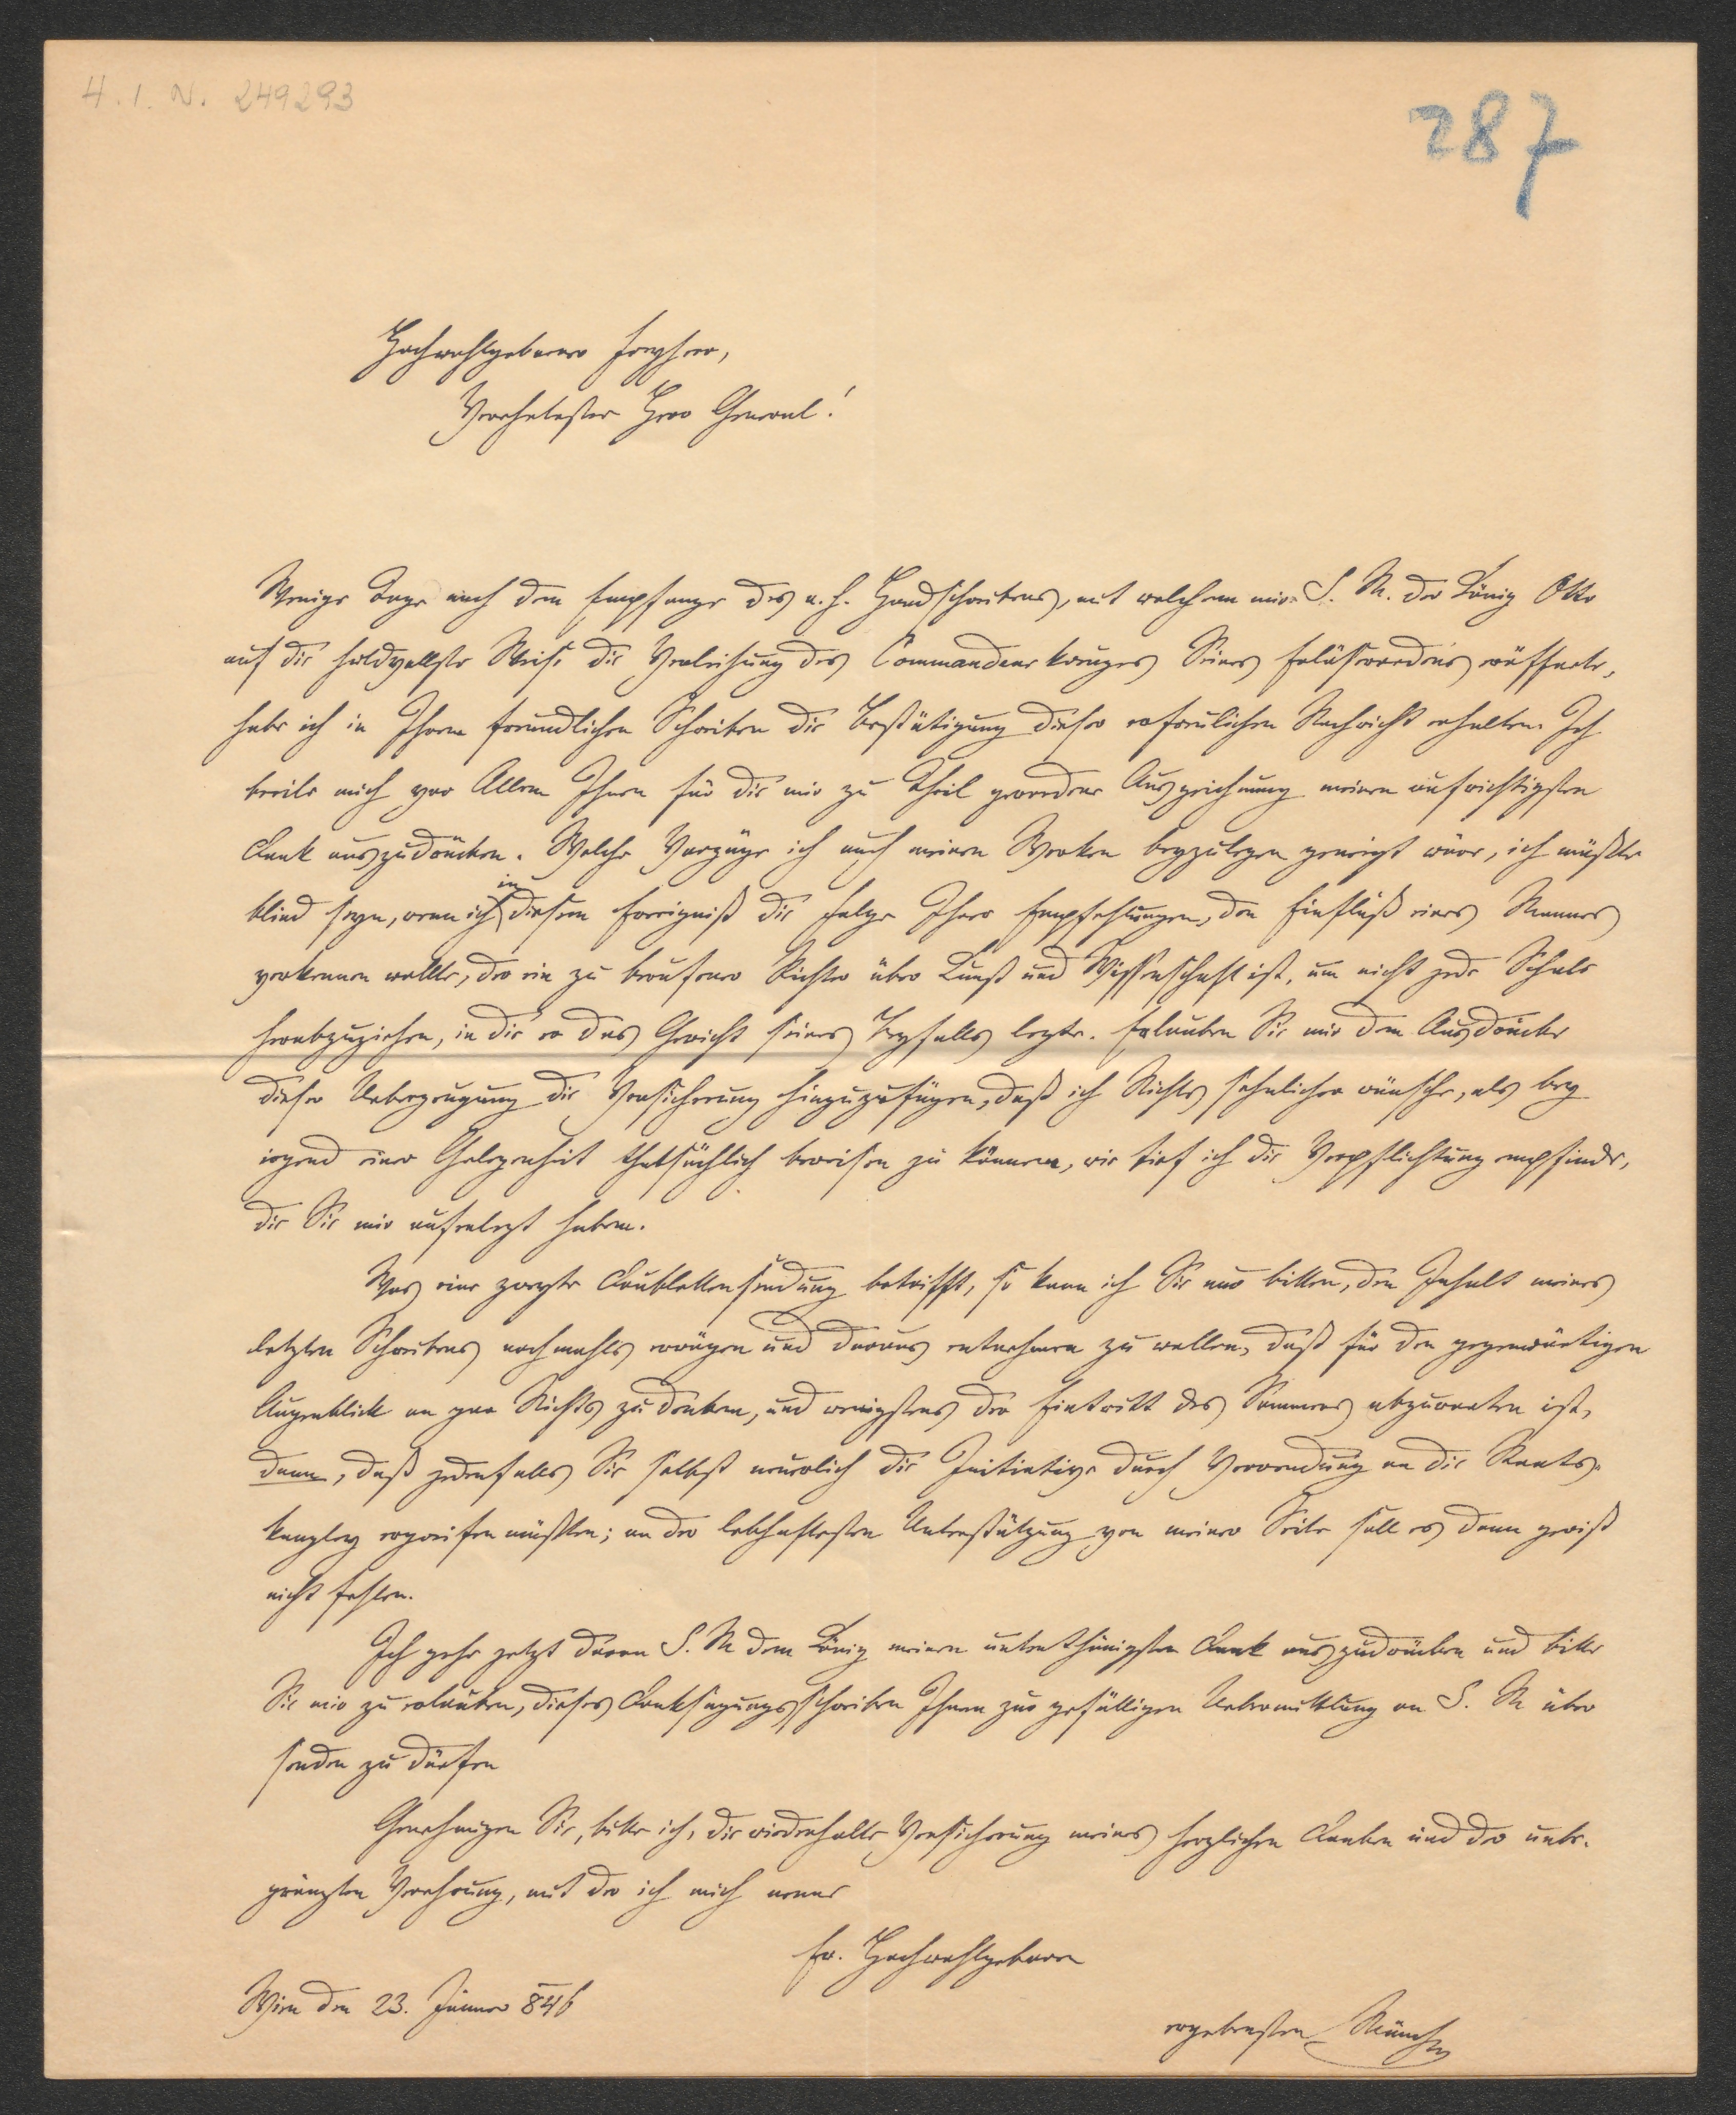 H.I.N. 249293
287
Hochwohlgeborner Freyherr,
Verehrtester Herr General!
Wenige Tage nach dem Empfange des a. h. Handschreibens, mit welchem mir S. M. der König Otto
auf die huldvollste Weise die Verleihung des Commandeurkreuzes Seines Erlöserordens eröffnete,
habe ich in Ihrem freundlichen Schreiben die Bestätigung dieser erfreulichen Nachricht erhalten. Ich
beeile mich vor Allem Ihnen für die mir zu Theil gewordene Auszeichnung meinen aufrichtigsten
Dank auszudrücken. Welche Vorzüge ich auch meinen Werken beyzulegen geneigt wäre, ich müßte
blind seyn, wenn ich in diesem Ereigniß die Folge Ihrer Empfehlungen, den Einfluß eines Mannes
verkennen wollte, der ein zu berufener Richter über Kunst und Wissenschaft ist, um nicht jede Schale
herabzuziehen, in die er das Gewicht seines Beyfalls legte. Erlauben Sie mir dem Ausdrucke
dieser Ueberzeugung die Versicherung hinzuzufügen, daß ich Nichts sehnlicher wünsche, als bey
irgend einer Gelegenheit thatsächlich beweisen zu können, wie tief ich die Verpflichtung empfinde,
die Sie mir auferlegt haben.
Was eine zweyte Doublettensendung betrifft, so kann ich Sie nur bitten, den Inhalt meines
letzten Schreibens nochmahls erwägen und daraus entnehmen zu wollen, daß für den gegenwärtigen
Augenblick an gar Nichts zu denken, und wenigstens der Eintritt des Sommers abzuwarten ist,
dann, daß jedenfalls Sie selbst neuerlich die Initiative durch Verwendung an die Staats-
kanzley ergreifen müßten; an der lebhaftesten Unterstützung von meiner Seite soll es dann gewiß
nicht fehlen.
Ich gehe jetzt daran S. M. dem König meinen unterthänigsten Dank auszudrücken und bitte
Sie mir zu erlauben, dieses Danksagungsschreiben Ihnen zur gefälligen Uebermittlung an S. M. über
senden zu dürfen
Genehmigen Sie, bitte ich, die wiederholte Versicherung meines herzlichen Dankes und der unbe-
gränzten Verehrung, mit der ich mich nenne
Er. Hochwohlgeboren
Wien den 23. Jänner 846
ergebensten Münch